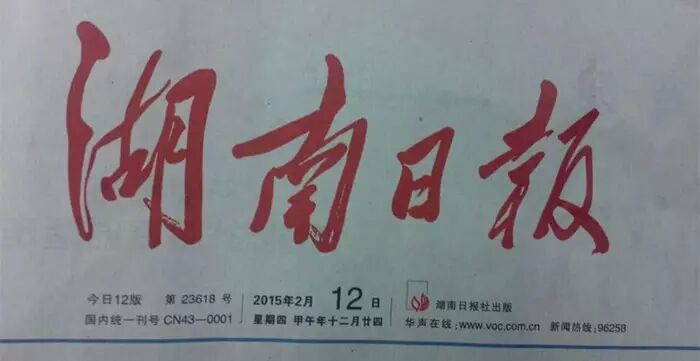 湖南日报
今日12版 第 23618 号
国内统一刊号 CN43—0001
2015年2月 12 日
星期四 甲午年十二月廿四
湖南日报社出版
华声在线:www.voc.com.cn 新闻热线:96258